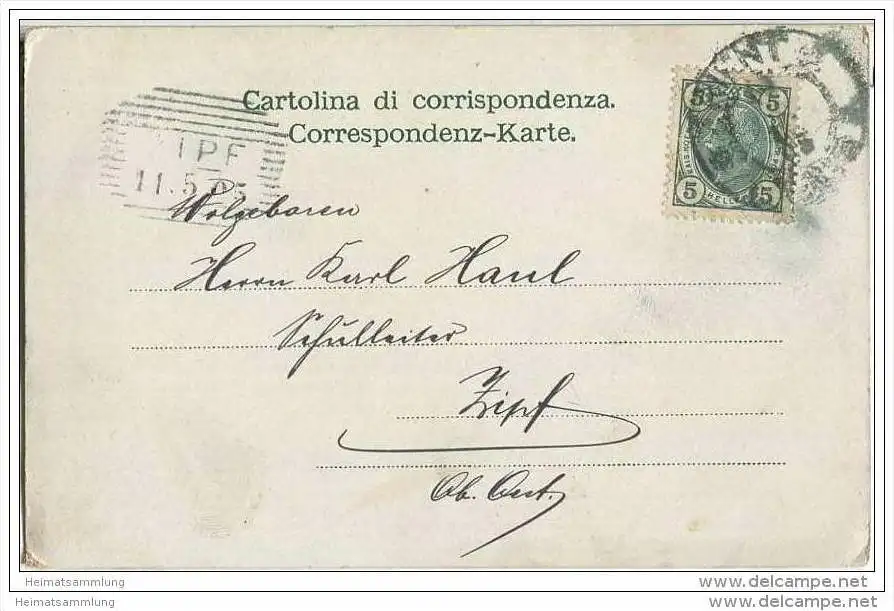 Cartolina di corrispondenza.
Correspondenz-Karte.
ZIPF
11.5.05
Wolgeboren
Herrn Karl Haul
Schulleiter
Zipf
Ob. Oest.
5 5
5 5
Heimatsammlung
www.delcampe.net